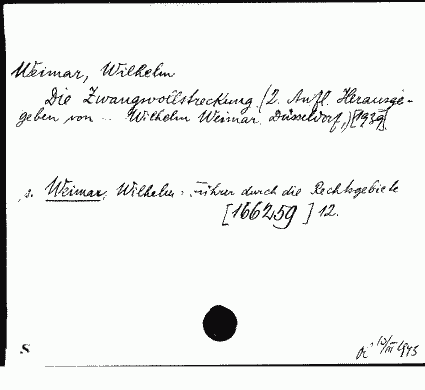 Weimar, Wilhelm
Die Zwangsvollstreckung. (2. Aufl. Herausge-
geben von ... Wilhelm Weimar. Düsseldorf,) [1939].
s. Weimar, Wilhelm: Führer durch die Rechtsgebiete
[166259] 12.
S